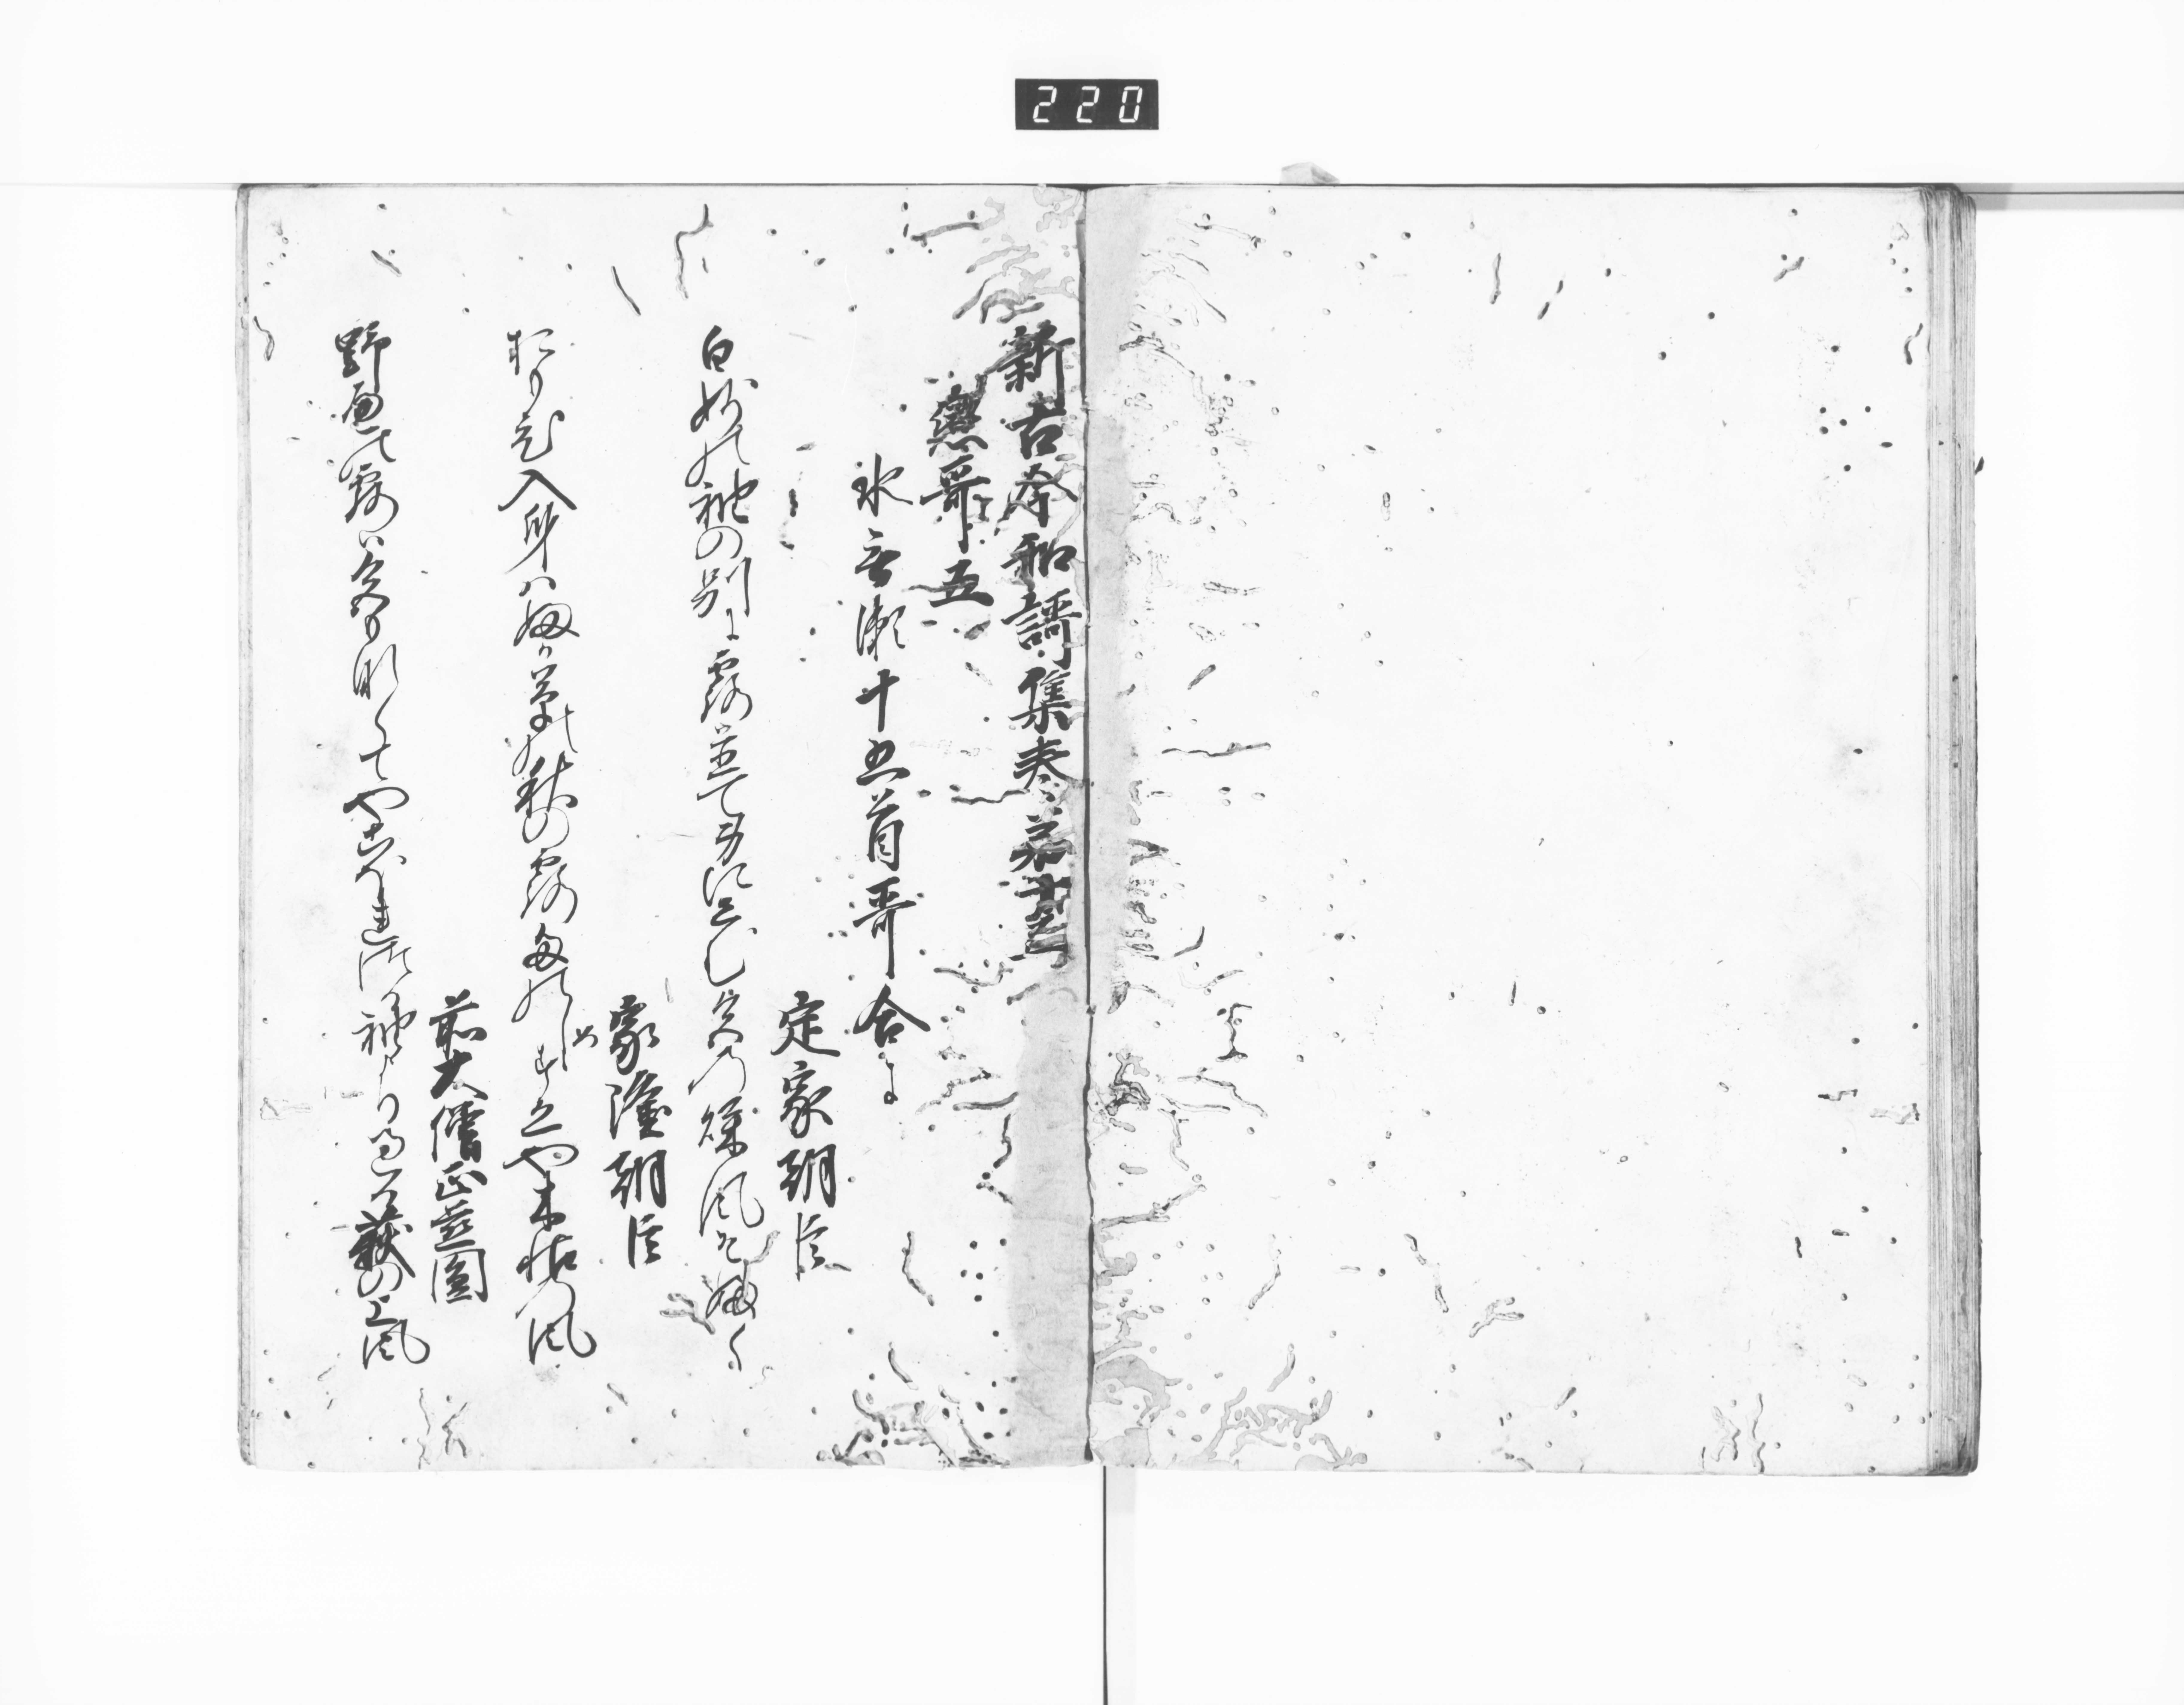 220
新古今和謌集巻第十五
戀哥五
水無瀬十五首哥合に
定家朝臣
白妙の袖の別に露落て身にしむ色の秌風そ婦く
家隆朝臣
おもひ入身ハ婦か草の秋の露多のめしすゑや木枯の風
前大僧正慈圓
野邊の露ハ色も那くてやこほれつる袖より過る荻の上風